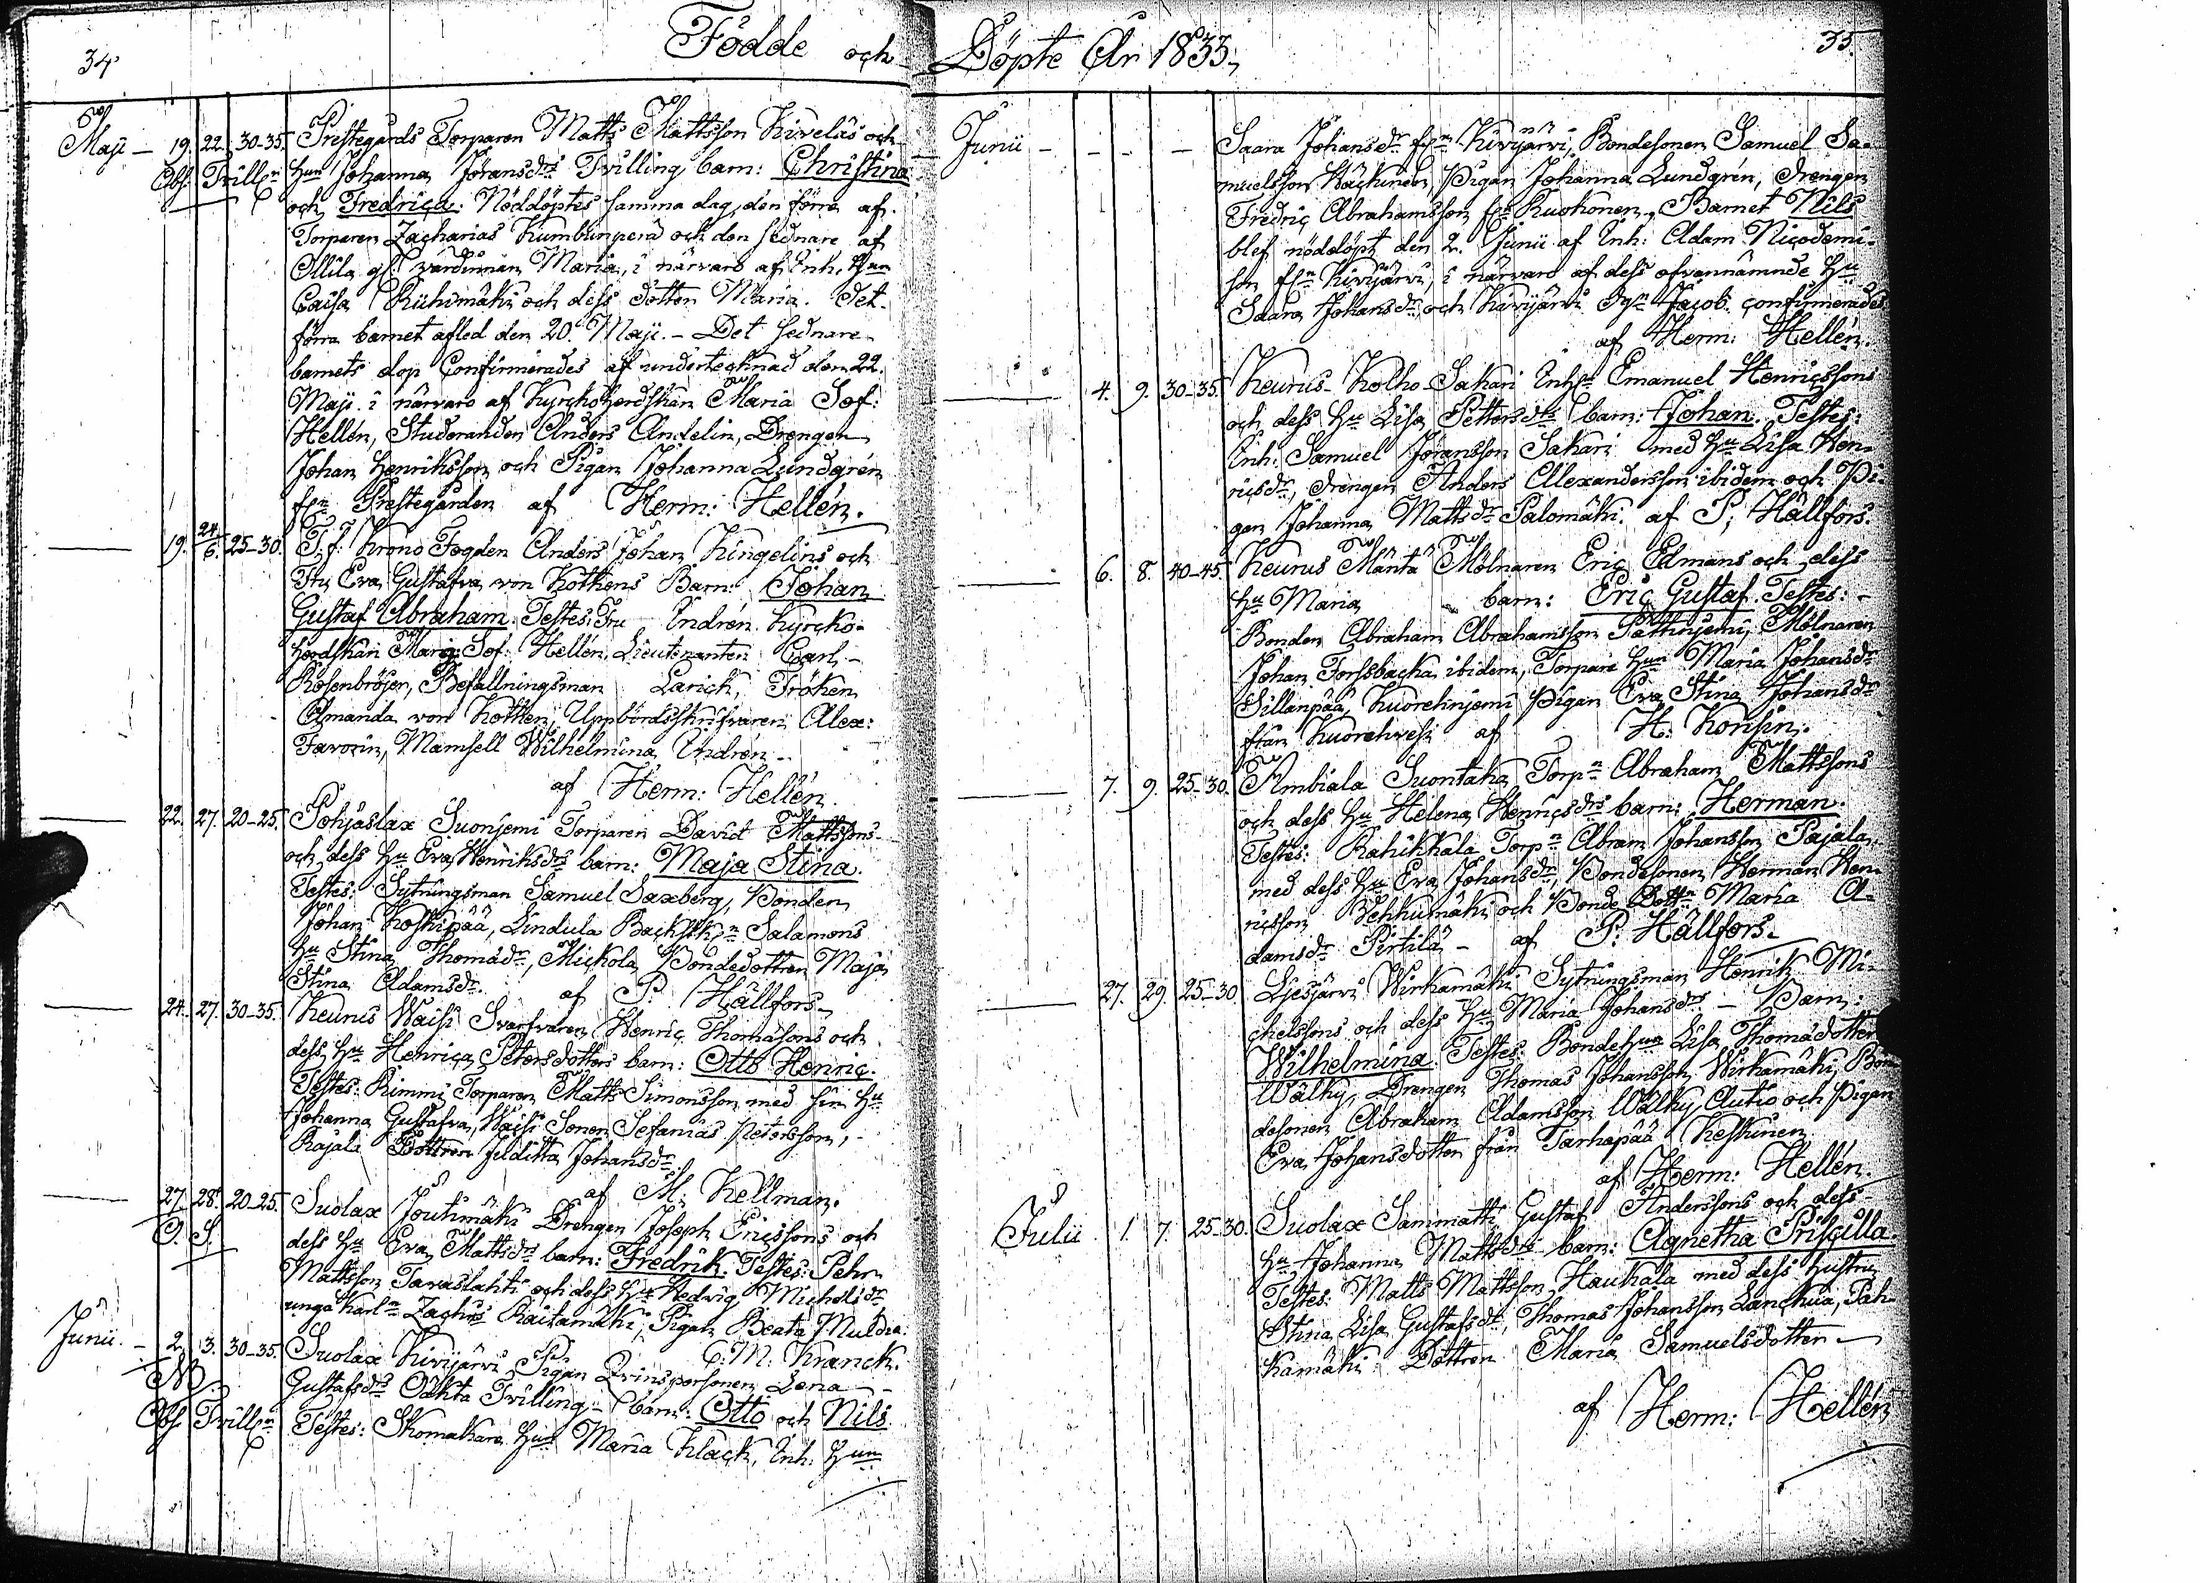 34
Födde och
Maji – 19. 22. 30–35. Prestegårds Torparen Matts Mattsson Kiveläs och
Obs. Trill:r Hun Johanna Jöransdrs Tvilling barn: Christina
och Fredrica. Nöddöptes samma dag, den förra af
Torparen Zacharias och den sednare af
Ollila gl. värdinnan Maria, i närvaro af Inh. Hun
Caisa Riihimäki och dess dotter Maria. Det
förra barnet afled den 20. Maji. – Det sednare
barnets dop Confirmerades af undertecknad den 22.
Maji i närvaro af Kyrckoherdskan Maria Sof:
Hellén, Studeranden Anders Andelin, Drengen
Johan Henriksson och Pigan Johanna Lundgrén
frn Prestegården af Herm: Hellén.
19. 24/6. 25–30. T. f. Krono Fogden Anders Johan Kingelins och
Fru Eva Gustafva von Kothens Barn: Johan
Gustaf Abraham. Testes: Fru Indrén. Kyrcko-
herdskan Maria Sof: Hellén, Lieutenanten Carl
Rosenbröijer, Befallningsman Larick, Fröken
Amanda von Kothen, Uppbördsskrifvaren Alex:
Favorin, Mamsell Wilhelmina Indrén –
af Herm: Hellén.
22. 27. 20–25. Pohjaslax Suonjemi Torparen David Mattssons
och dess Hu Eva Henriksdrs barn: Maja Stina.
Testes: Sytningsman Samuel Saxberg, Bonden
Johan Koskipää, Lindula Backstkn Salamons
Hu Stina Thomædr, Mickola Bondedottren Maja
Stina Adamsdr. af P. Hällfors –
24. 27. 30–35. Keurus Waissi Svarfvaren Henric Thomæsons och
dess Hu Henrica Petersdotters barn: Otto Henric.
Testes: Rimmi Torparen Matts Simonsson med sin Hu
Johanna Gustafva, Waissi Sonen Sefanias Petersson,
Rajala Dottren Johansdr.
af M. Kellman.
27. 28. 20–25. Suolax Joutimäki Drengen Joseph Ericssons och
O. S. dess Hu Eva Mattsdrs barn: Fredrik. Testes: Pehr
Mattsson Tavaslahti och dess Hu Hedvig Michelsdr
unga Karln Zachris Raitamäki, Pigan Beata Muldia.
C. M. Kranck.
Junii. – 2. 3. 30–35. Suolax Kivijärvi Pigan Qvinspersonen Lena
N. Gustafsdrs Oäkta Tvilling – barn: Otto och Nils
Obs. Trill:r Testes: Skomakare Hun Maria Klack, Inh. Hun
Döpte År 1833.
35.
Junii – – – – Saara Johansdr frn Kivijärvi, Bondesonen Samuel Sa-
muelsson Wäckinen, Pigan Johanna Lundgrén, drengen
Fredric Abrahamsson frn Ruokonen. Barnet Nils
blef nöddöpt den 2. Junii af Inh: Adam Nicodemi-
son frn Kivijärvi, i närvaro af dess ofvannämnde Hu
Saara Johansdr och Kivijärvi Dgn Jacob. confirmerades
af Herm: Hellén.
4. 9. 30–35. Keurus Kolho Sakari Inhs Emanuel Henricssons
och dess Hu Lisa Pettersdrs barn: Johan. Testes:
Inh. Samuel Jöransson Sakari med Hu Lisa Hen-
ricsdr, drengen Anders Alexandersson ibidem och Pi-
gan Johanna Mattsdr Palomäki. af P. Hällfors.
6. 8. 40–45. Keurus Mänttä Mölnaren Eric Edmans och dess
Hu Maria barn: Eric Gustaf. Testes: –
Bonden Abraham Abrahamsson Pättinjemi, Mölnaren
Johan Forssbacka ibidem, Torpare Hun Maria Johansdr
Sillanpää, Kuorehinjemi Pigan Eva Stina Johansdr
från Kuorehvesi af H. Konsin.
7. 9. 25–30. Ambiala Suontaka Torpn Abraham Mattssons
och dess Hu Helena Henricsdrs barn: Herman.
Testes: Rahikkala Torpn Abram Johansson Pajala,
med dess Hu Eva Johansdr, Bondesonen Herman Hen-
ricsson Vehkumäki och Bonde Dottn Maria A-
damsdr Pirtilä – af P. Hällfors.
27. 29. 25–30. Ljesjärvi Wirkamäki Sytningsman Henrik Mi-
chelssons och dess Hu Maria Johansdrs – Barn:
Wilhelmina. Testes: Bonde Hun Lisa Thomædotter
Wälky, Drengen Thomas Johansson Wirkamäki, Bon-
desonen Abraham Adamsson Wälky Autio och Pigan
Eva Johansdotter från Tarhapää Keskinen
af Herm: Hellén.
Julii. 1. 7. 25–30. Suolax Sammatti Gustaf Anderssons och dess
Hu Johanna Mattsdrs barn: Agnetha Priscilla.
Testes: Matts Mattsson Haukala med dess hustru
Stina Lisa Gustafsdr, Thomas Johansson Lanckua, Pah-
kamäki Dottren Maria Samuelsdotter –
af Herm: Hellén